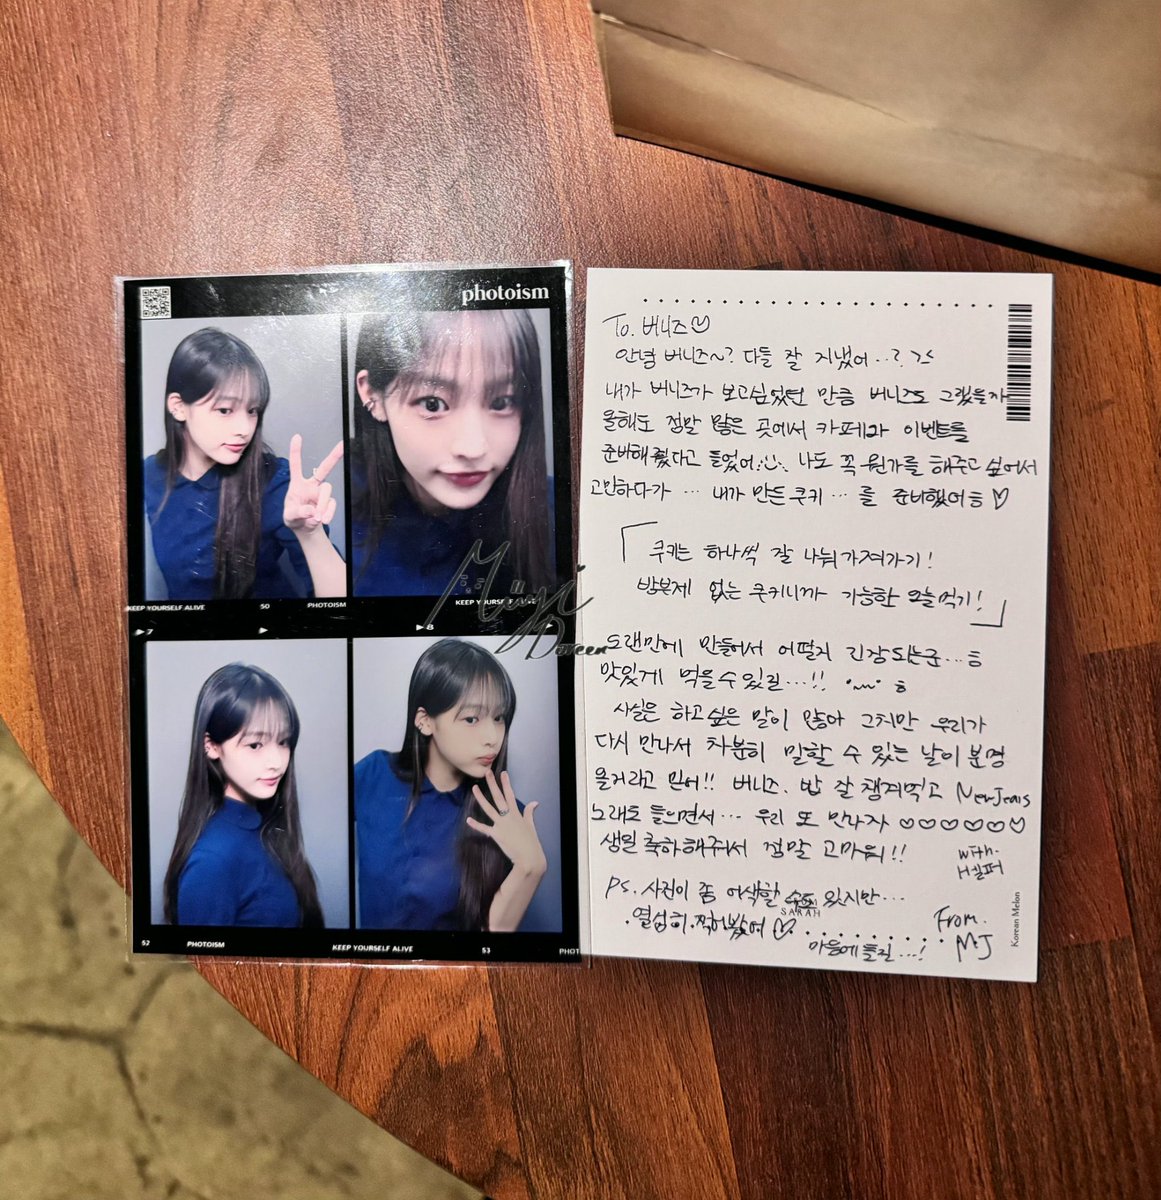 photoism
KEEP YOURSELF ALIVE 50 PHOTOISM KEEP YOURSELF ALIVE
▶7 ▶ ▶8
52 PHOTOISM KEEP YOURSELF ALIVE 53 PHOT
Müyi
Doreen
To. 버니즈♡
안녕 버니즈~? 다들 잘 지냈어...?
내가 버니즈가 보고싶었던 만큼 버니즈도 그랬을까
올해도 정말 많은 곳에서 카페와 이벤트를
준비해줬다고 들었어 나도 꼭 뭔가를 해주고 싶어서
고민하다가 ... 내가 만든 쿠키 ... 를 준비했어ㅎ♡
「쿠키는 하나씩 잘 나눠가져가기!
방부제 없는 쿠키니까 가능한 오늘먹기!」
오랜만에 만들어서 어떨지 긴장되는군...ㅎ
맛있게 먹을수있길...!! ㅎ
사실은 하고싶은 말이 많아 그치만 우리가
다시 만나서 차분히 말할 수 있는 날이 분명
올거라고 믿어!! 버니즈. 밥 잘 챙겨먹고 NewJeans
노래도 들으면서... 우리 또 만나자 ♡♡♡♡♡♡
생일 축하해줘서 정말 고마워!!
with.
PS. 사진이 좀 어색할 수도 있지만...
SARAH
열심히 찍어봤어 ♡
마음에 들길...!
From.
MJ
Korean Melon